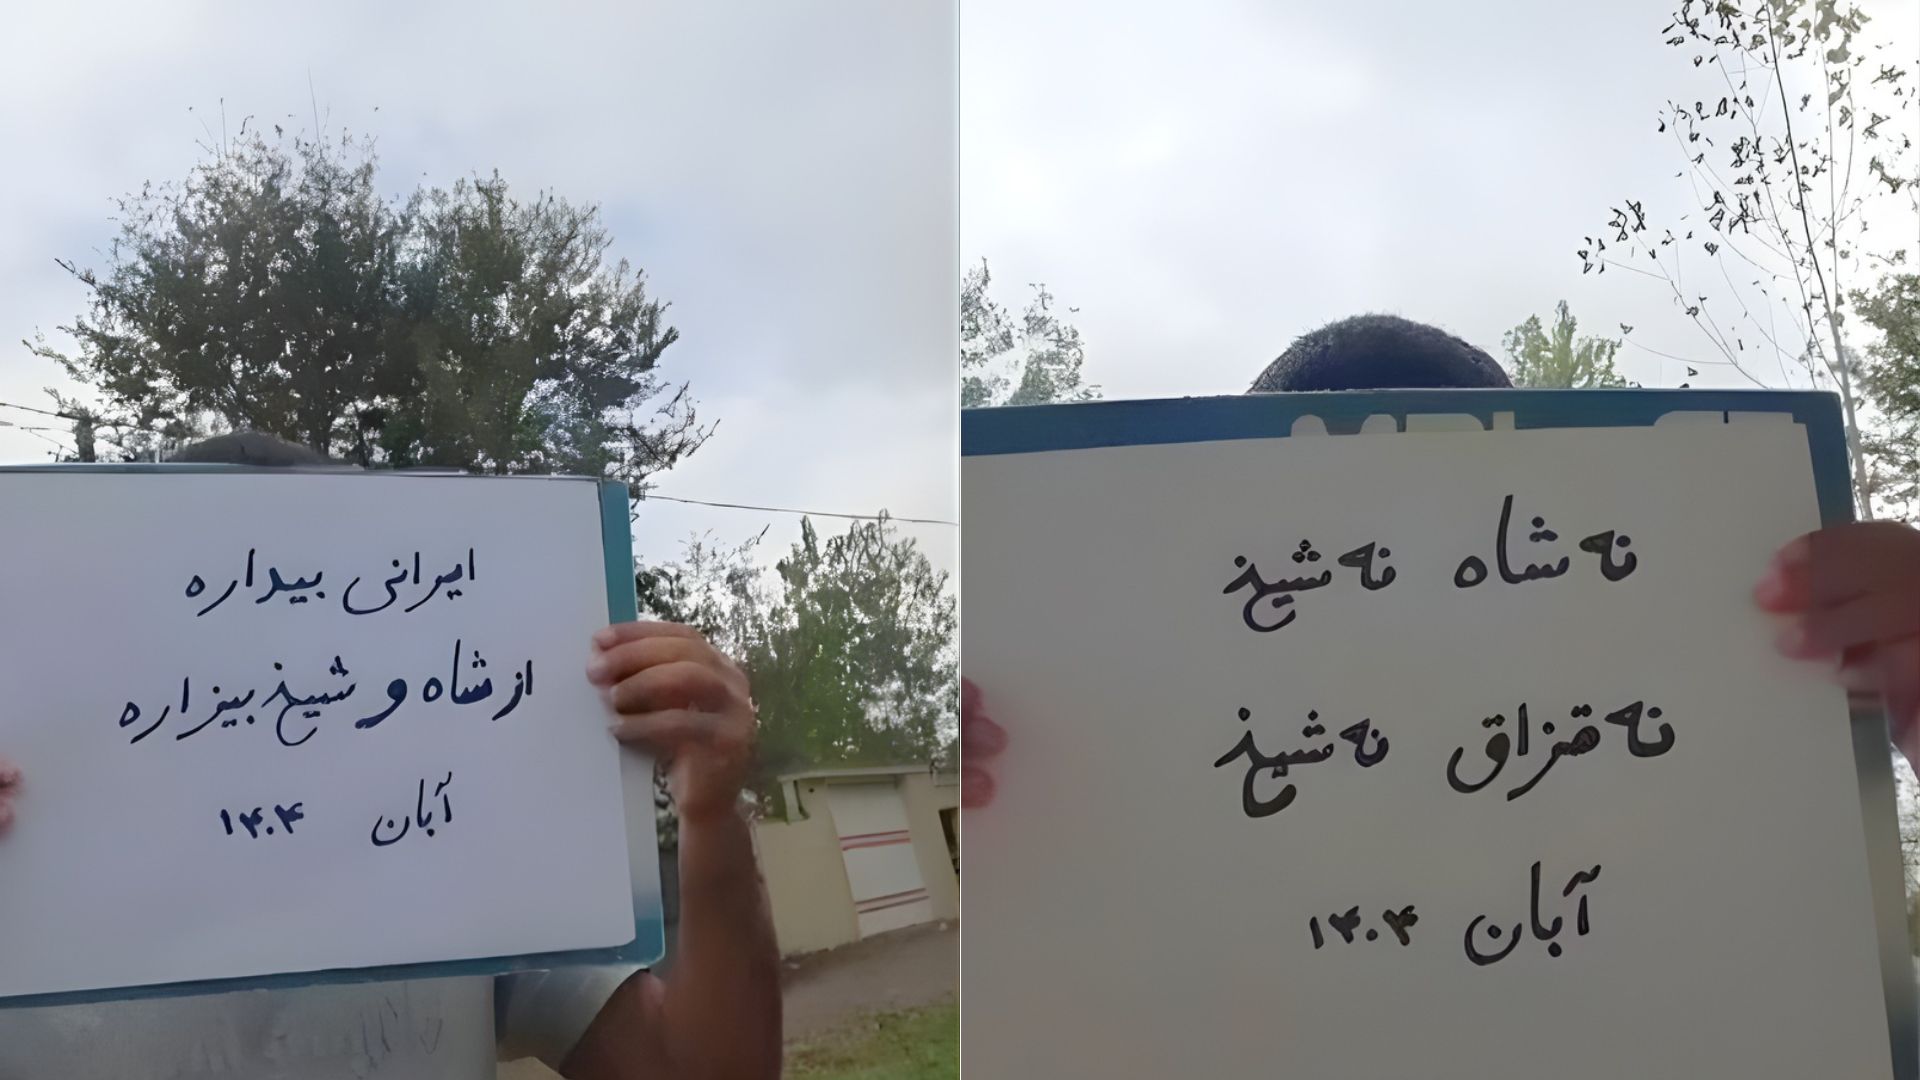 ایرانی بیداره
از شاه و شیخ بیزاره
آبان ۱۴۰۴
نه شاه نه شیخ
نه قزاق نه شیخ
آبان ۱۴۰۴